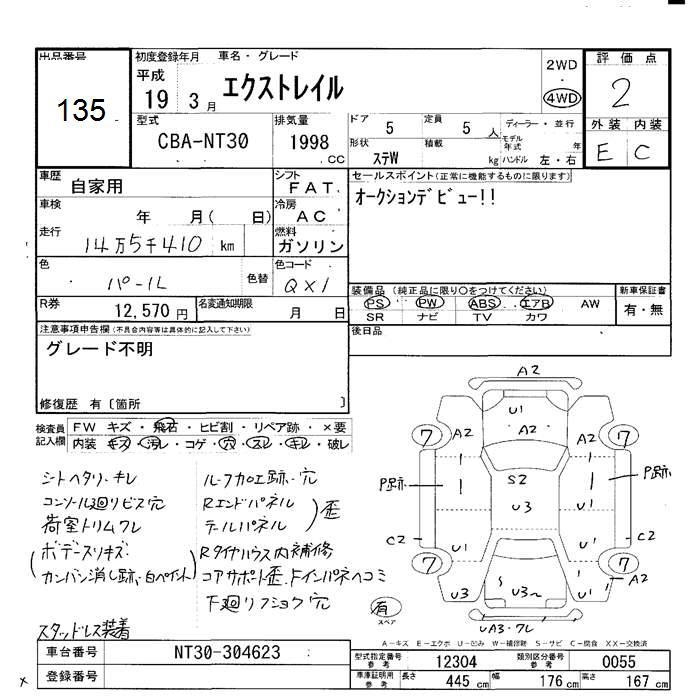 出品番号 初度登録年月 車名・グレード 2WD 評価点
135
平成 19 3月 エクストレイル ・ 4WD 2
型式 排気量 ドア 5 定員 5人 ディーラー・並行 外装 内装
CBA-NT30 1998 CC 形状 ステW 積載 kg モデル年式 年 ハンドル 左・右 E C
車歴 自家用 シフト FAT セールスポイント(正常に機能するものに限ります)
車検 年 月( 日) 冷房 AC オークションデビュー!!
走行 14万5千410 km 燃料 ガソリン
色 パール 色替 色コード QX1
装備品(純正品に限り○をつけてください) 新車保証書
R券 12,570円 名変通知期限 月 日 PS PW ABS エアB AW 有・無
SR ナビ TV カワ
注意事項申告欄(不具合内容等は具体的に記入して下さい) 後日品
グレード不明
修復歴 有〔箇所 〕
検査員記入欄 FW キズ・飛石・ヒビ割・リペア跡・×要
内装 キズ・汚レ・コゲ・穴・スレ・キレ・破レ
シートヘタリ・キレ
コンソール廻リビス穴
荷室トリムワレ
ボデースリキズ
カンバン消し跡・白ペイント
スタッドレス装着
ルーフ加工跡・穴
Rエンドパネル
テールパネル 歪
Rタイヤハウス内補修
コアサポート歪・Fインパネヘコミ
下廻リフショク穴
A2
U1
7 A2 A2 A2 7
P跡 S2 P跡
U3 U1
C2 U1 U1 C2
7 7
A2
U3 S U3 U1
有 スペア
UA3・ワレ
A-キズ E-エクボ U-凹み W-補修跡 S-サビ C-腐食 XX-交換済
車台番号 NT30-304623 型式指定番号 参考 12304 類別区分番号 参考 0055
登録番号 車庫証明用 参考 長さ 445cm 幅 176cm 高さ 167cm